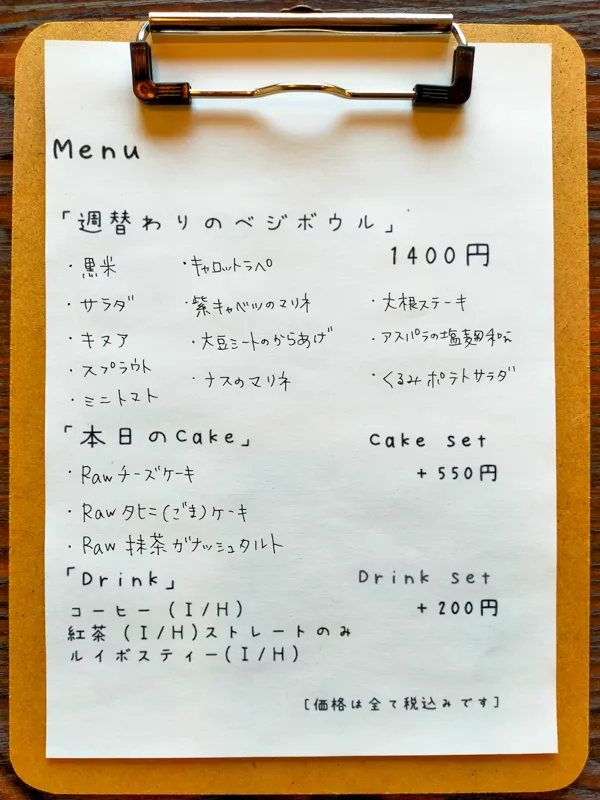 Menu
「週替わりのベジボウル」
1400円
・黒米 ・キャロットラペ
・サラダ ・紫キャベツのマリネ ・大根ステーキ
・キヌア ・大豆ミートのからあげ ・アスパラの塩麹和え
・スプラウト ・ナスのマリネ ・くるみポテトサラダ
・ミニトマト
「本日のCake」 Cake set
・Raw チーズケーキ +550円
・Raw タヒニ(ごま)ケーキ
・Raw 抹茶ガナッシュタルト
「Drink」 Drink set
コーヒー (I/H) +200円
紅茶 (I/H)ストレートのみ
ルイボスティー(I/H)
[価格は全て税込みです]